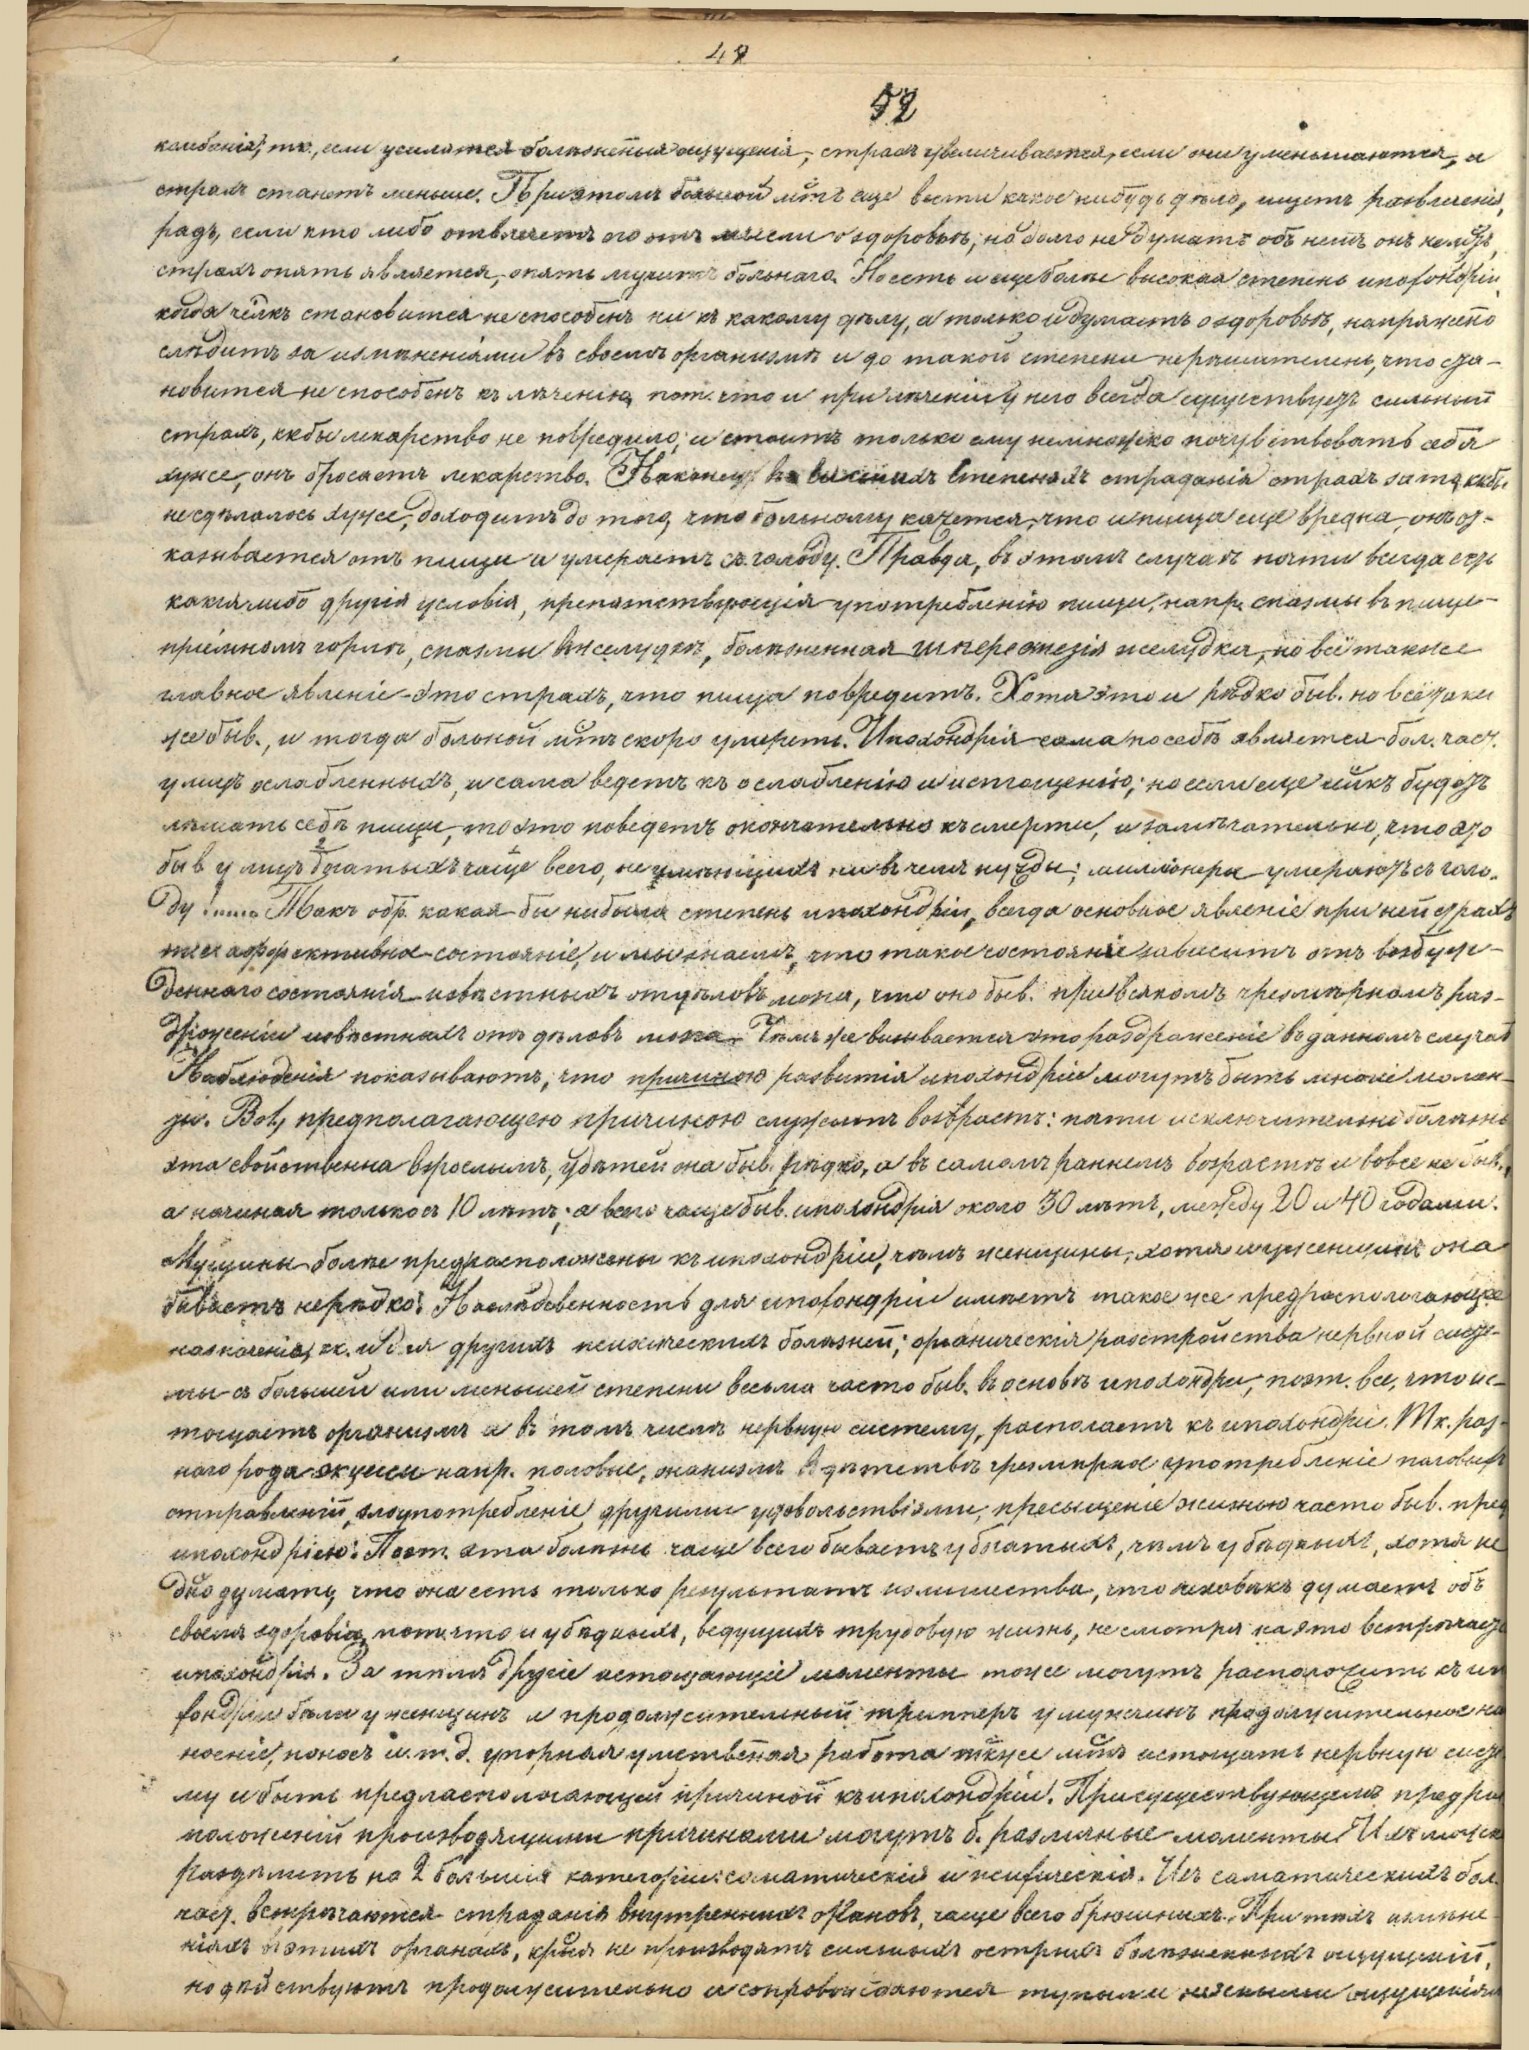 49
52
колебанія, т.к., если усилятся болѣзненныя ощущенія, страхъ увеличивается, если они уменьшаются, и
страхъ станетъ меньше. При этомъ больной мтъ еще вести какое нибудь дѣло, ищетъ развлеченія,
радъ, если кто либо отвлечетъ его отъ мысли о здоровьѣ; но долго не думать объ немъ онъ не мтъ,
страхъ опять является, опять мучитъ больнаго. Но есть и еще болѣе высокая степень ипохондріи,
когда члкъ становится не способенъ ни къ какому дѣлу, а только и думаетъ о здоровьѣ, напряженно
слѣдитъ за измѣненіями въ своемъ организмѣ и до такой степени нерѣшителенъ, что ста-
новится не способенъ къ лѣченію, пот. что и при лѣченіи у него всегда существуетъ сильный
страхъ, ккбы лекарство не повредило; и стоитъ только ему немножко почувствовать себя
хуже, онъ бросаетъ лекарство. Наконецъ въ высшихъ степеняхъ страданія страхъ за то, ккбы
не сдѣлалось хуже, доходитъ до того, что больному кажется, что и пища еще вредна, онъ от-
казывается отъ пищи и умираетъ съ голоду. Правда, въ этомъ случаѣ почти всегда есть
какія либо другія условія, препятствующія употребленію пищи, напр. спазмы въ пище-
пріемномъ горлѣ, спазмы въ желудкѣ, болѣзненная гиперэстезія желудка, но всё также
главное явленіе - это страхъ, что пища повредитъ. Хотя это и рѣдко быв. но всётаки
же быв., и тогда больной мтъ скоро умереть. Ипохондрія сама по себѣ является бол. част.
у лицъ ослабленныхъ, и сама ведетъ къ ослабленію и истощенію; но если еще члкъ будетъ
лишать себя пищи, то это поведетъ окончательно къ смерти, и замѣчательно, что это
быв. у лицъ богатыхъ чаще всего, не имѣющихъ ни въ чемъ нужды; миллiонеры умираютъ съ голо-
ду!.... Такъ обр. какая бы ни была степень ипохондріи, всегда основное явленіе при ней страхъ
т.е. аффективное состояніе, и мы знаемъ, что такое состояніе зависитъ отъ возбуж-
деннаго состоянія извѣстныхъ отдѣловъ мозга, что оно быв. при всякомъ чрезмѣрномъ раз-
драженіи извѣстныхъ отдѣловъ мозга. Чѣмъ же вызывается это раздраженіе въ данномъ случаѣ
Наблюденія показываютъ, что причиною развитія ипохондріи могутъ быть многіе момен-
ты. Вот, предполагающею причиною служитъ возрастъ: почти исключительно болѣзнь
эта свойственна взрослымъ, у дѣтей она быв. рѣдко, а въ самомъ раннемъ возрастѣ и вовсе не быв.,
а начиная только съ 10 лѣтъ; а всего чаще быв. ипохондрія около 30 лѣтъ, между 20 и 40 годами.
Мущины болѣе предрасположены къ ипохондріи, чѣмъ женщины, хотя и у женщинъ она
бываетъ нерѣдко. Наслѣдственность для ипохондріи имѣетъ такое же предраспологающее
назначеніе, кк. и для другихъ психическихъ болѣзней; органическія разстройства нервной систе-
мы съ большей или меньшей степени весьма часто быв. въ основѣ ипохондріи, поэт. все, что ис-
тощаетъ организмъ а въ томъ числѣ нервную систему, располагаетъ къ ипохондріи. Тк. раз-
наго рода эксцессы напр. половые, онанизмъ въ дѣтствѣ чрезмѣрное употребленіе половыхъ
отправленій, злоупотребленіе другими удовольствіями, пресыщеніе жизнью часто быв. пред
ипохондріею. Поэт. эта болѣзнь чаще всего бываетъ у богатыхъ, чѣмъ у бѣдныхъ, хотя не
до думать, что она есть только результатъ излишества, что человѣкъ думаетъ объ
своемъ здоровіи, пот. что и у бѣдныхъ, ведущихъ трудовую жизнь, не смотря на это встрѣчает
ипохондрія. За тѣмъ другіе истощающіе моменты тоже могутъ расположить къ ипо
хондріи бѣли у женщинъ и продолжительный трипперъ у мужчинъ продолжительное на
ношеніе, поносъ и.т.д. упорная умственная работа также мтъ истощать нервную систе
му и быть предраспологающей причиной къ ипохондріи. При существующемъ предрас
положеній производящими причинами могутъ б. различные моменты. Ихъ можно
раздѣлить на 2 большія категоріи: соматическія и психическія. Изъ саматическихъ бол.
част. встрѣчаются страданія внутреннихъ органовъ, чаще всего брюшныхъ. При тѣхъ измѣне-
ніяхъ въ этихъ органахъ, крыя не производятъ сильныхъ острыхъ болѣзненныхъ ощущеній,
но дѣйствуютъ продолжительно и сопровождаются тупыми неясными ощущеніям